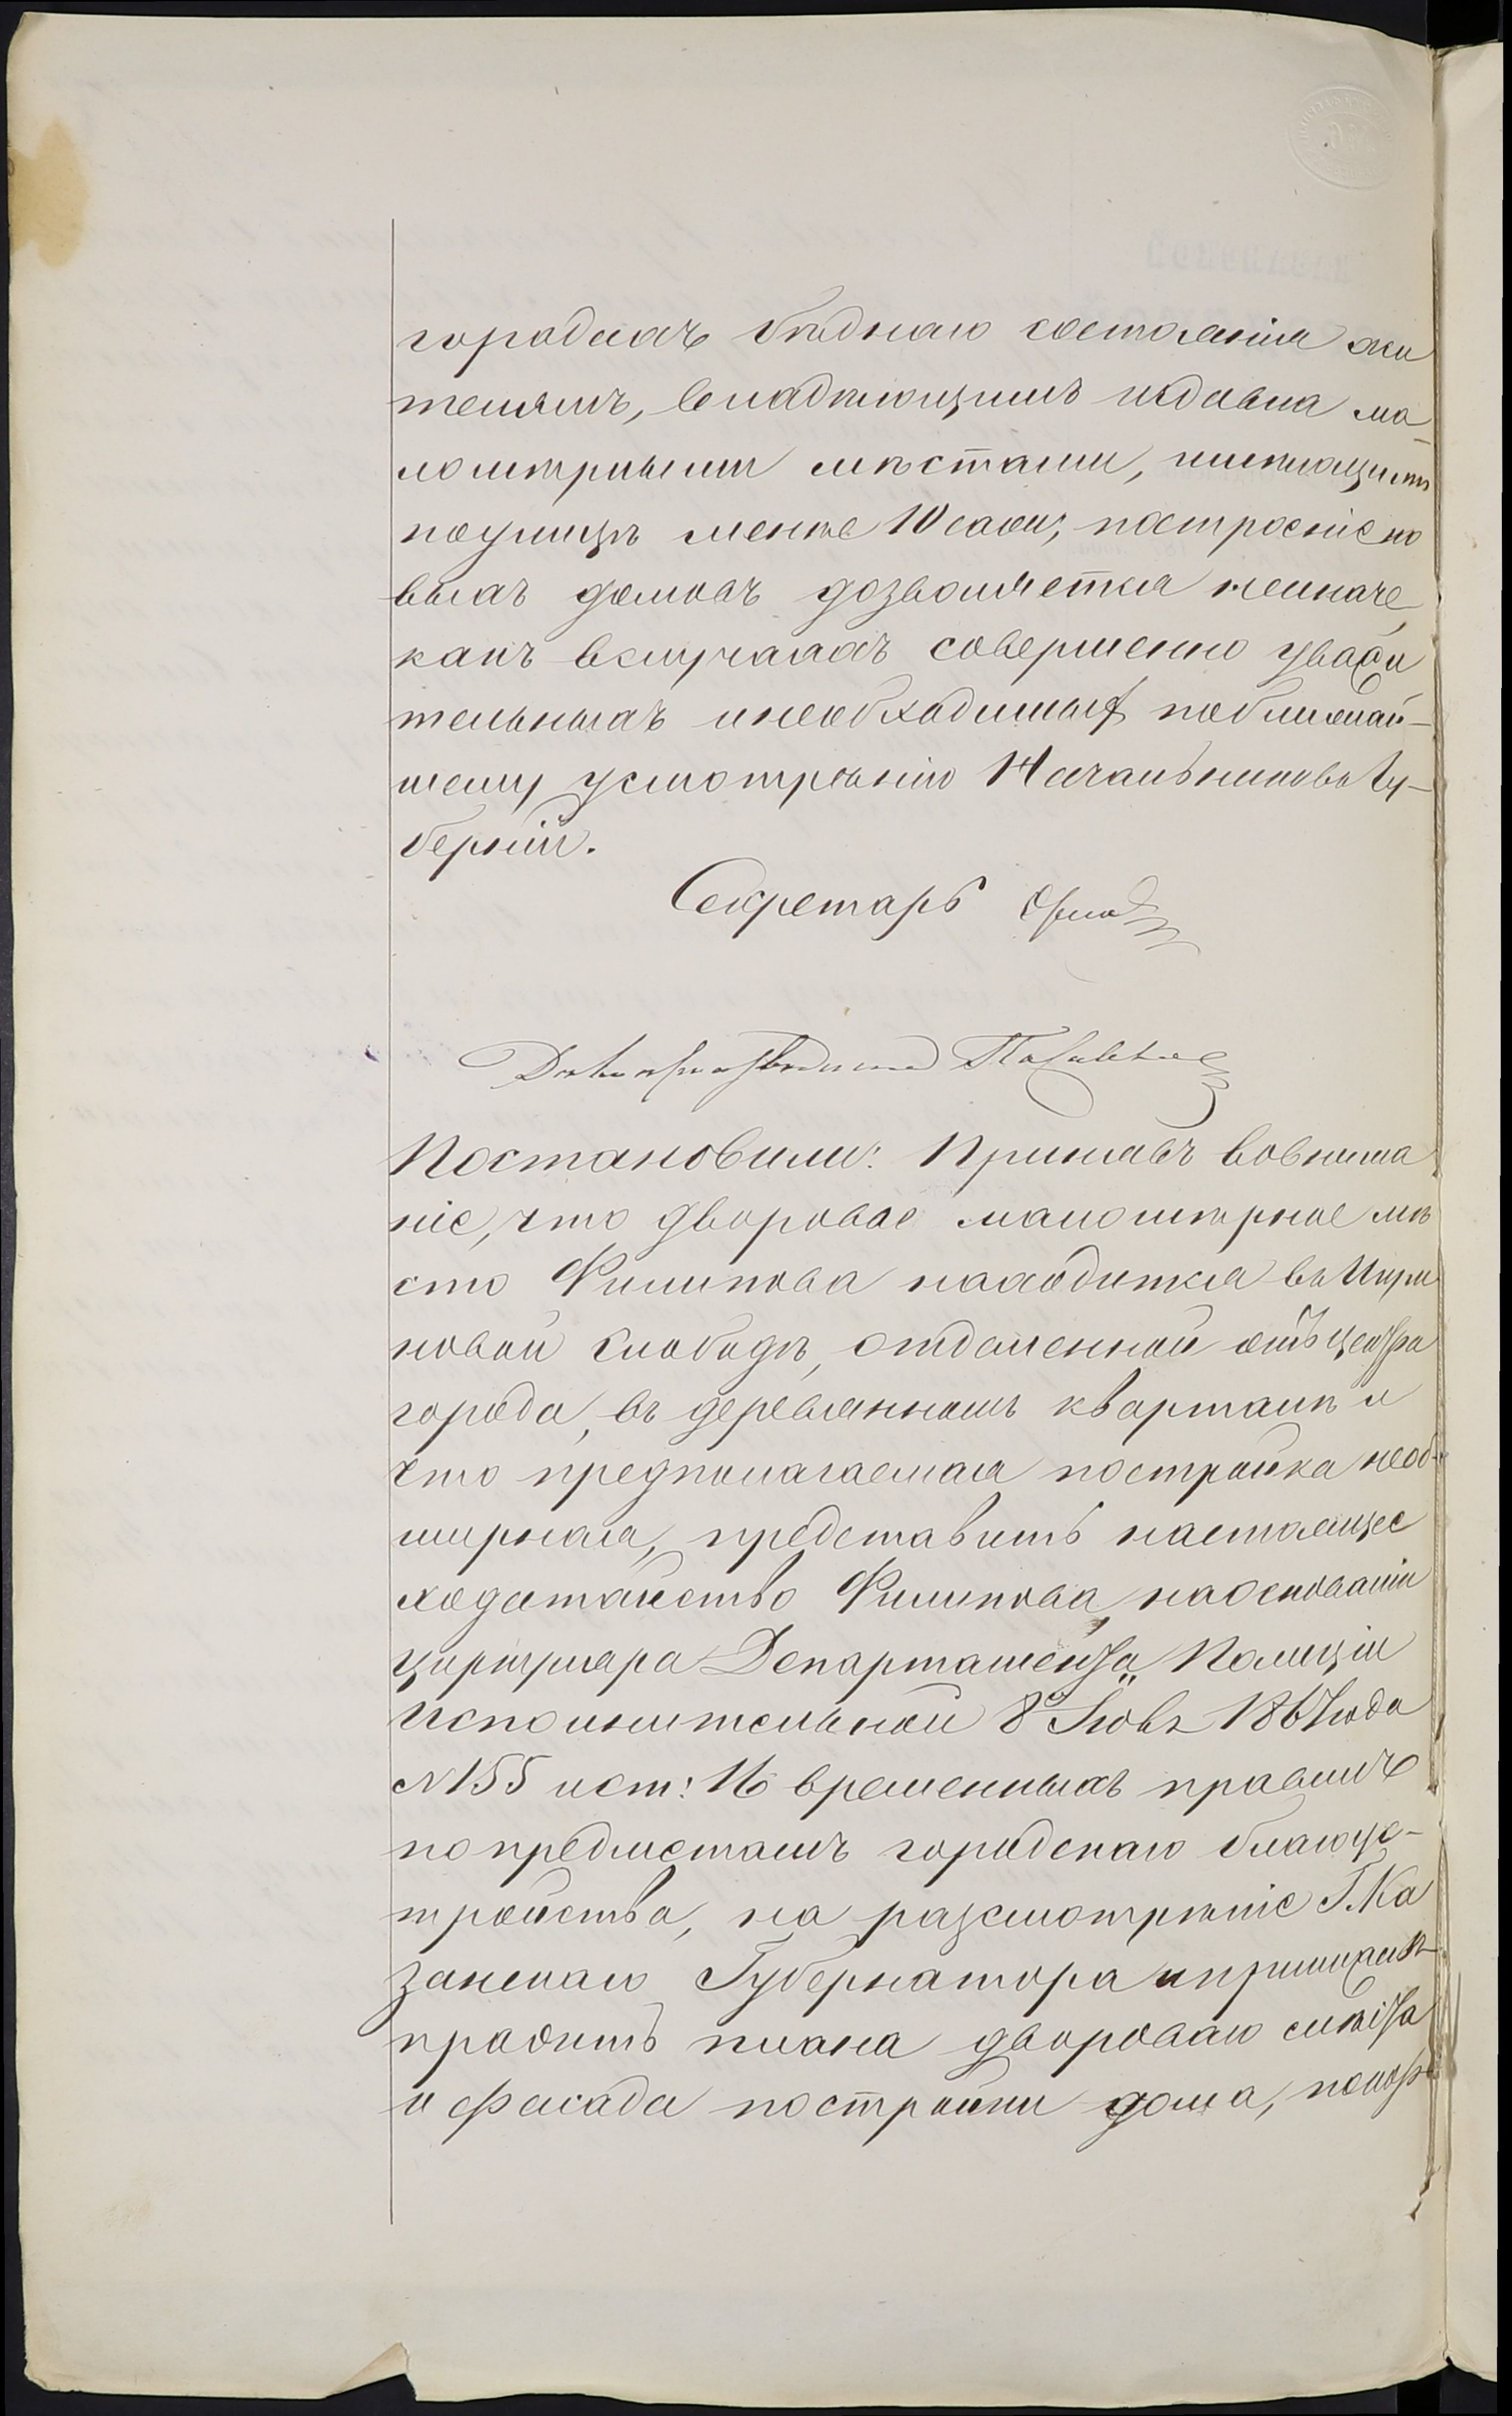 городахъ бѣднаго состоянія жи
телямъ, владѣющимъ издавна ма-
ломѣрными мѣстами, имѣющими
поулицѣ менѣе 10 саж:, построеніе но
выхъ домовъ дозволяется неиначе,
какъ вслучаяхъ совершенно уважи
тельныхъ инеобходимых поближай-
шему усмотрѣнію Начальниковъ Гу-
берніи.
Секретарь
Дѣлопроизводитель
Постановили: Принявъ вовнима
ніе, что дворовое маломѣрное мѣ
сто Филипова находится въ
новой Слободѣ, отдаленной отъ центра
города, въ деревянномъ кварталѣ и
что предполагаемая постройка необ-
ширная, представить настоящее
ходатайство Филипова, наоснованіи
циркуляра Департамента Полиціи
Исполнительной 8 Іюля 1867 года
№ 155 и ст: 16 временныхъ правилъ
по предметамъ городскаго благоус-
тройства, на разсмотрѣніе Г. Ка
занскаго Губернатора
плана двороваго мѣста
и фасада постройки дома,